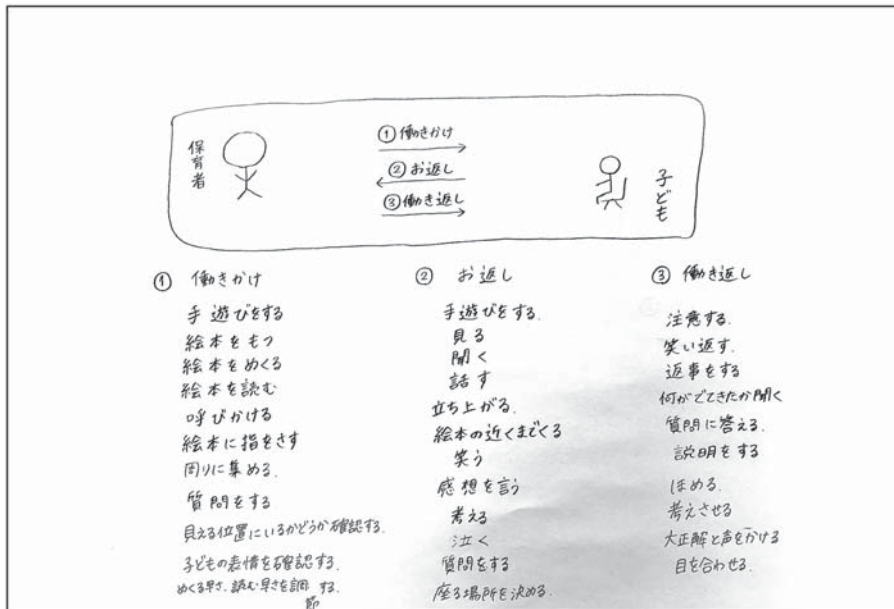 保育者
①働きかけ
②お返し
③働き返し
子ども
① 働きかけ
手遊びをする
絵本をもつ
絵本をめくる
絵本を読む
呼びかける
絵本に指をさす
周りに集める.
質問をする
見える位置にいるかどうか確認する.
子どもの表情を確認する.
めくる早さ、読む早さを調節する.
② お返し
手遊びをする.
見る
聞く
話す
立ち上がる.
絵本の近くまでくる
笑う
感想を言う
考える
泣く
質問をする
座る場所を決める.
③ 働き返し
注意する.
笑い返す.
返事をする
何がでてきたか聞く
質問に答える.
説明をする
ほめる.
考えさせる
大正解と声をかける
目を合わせる.